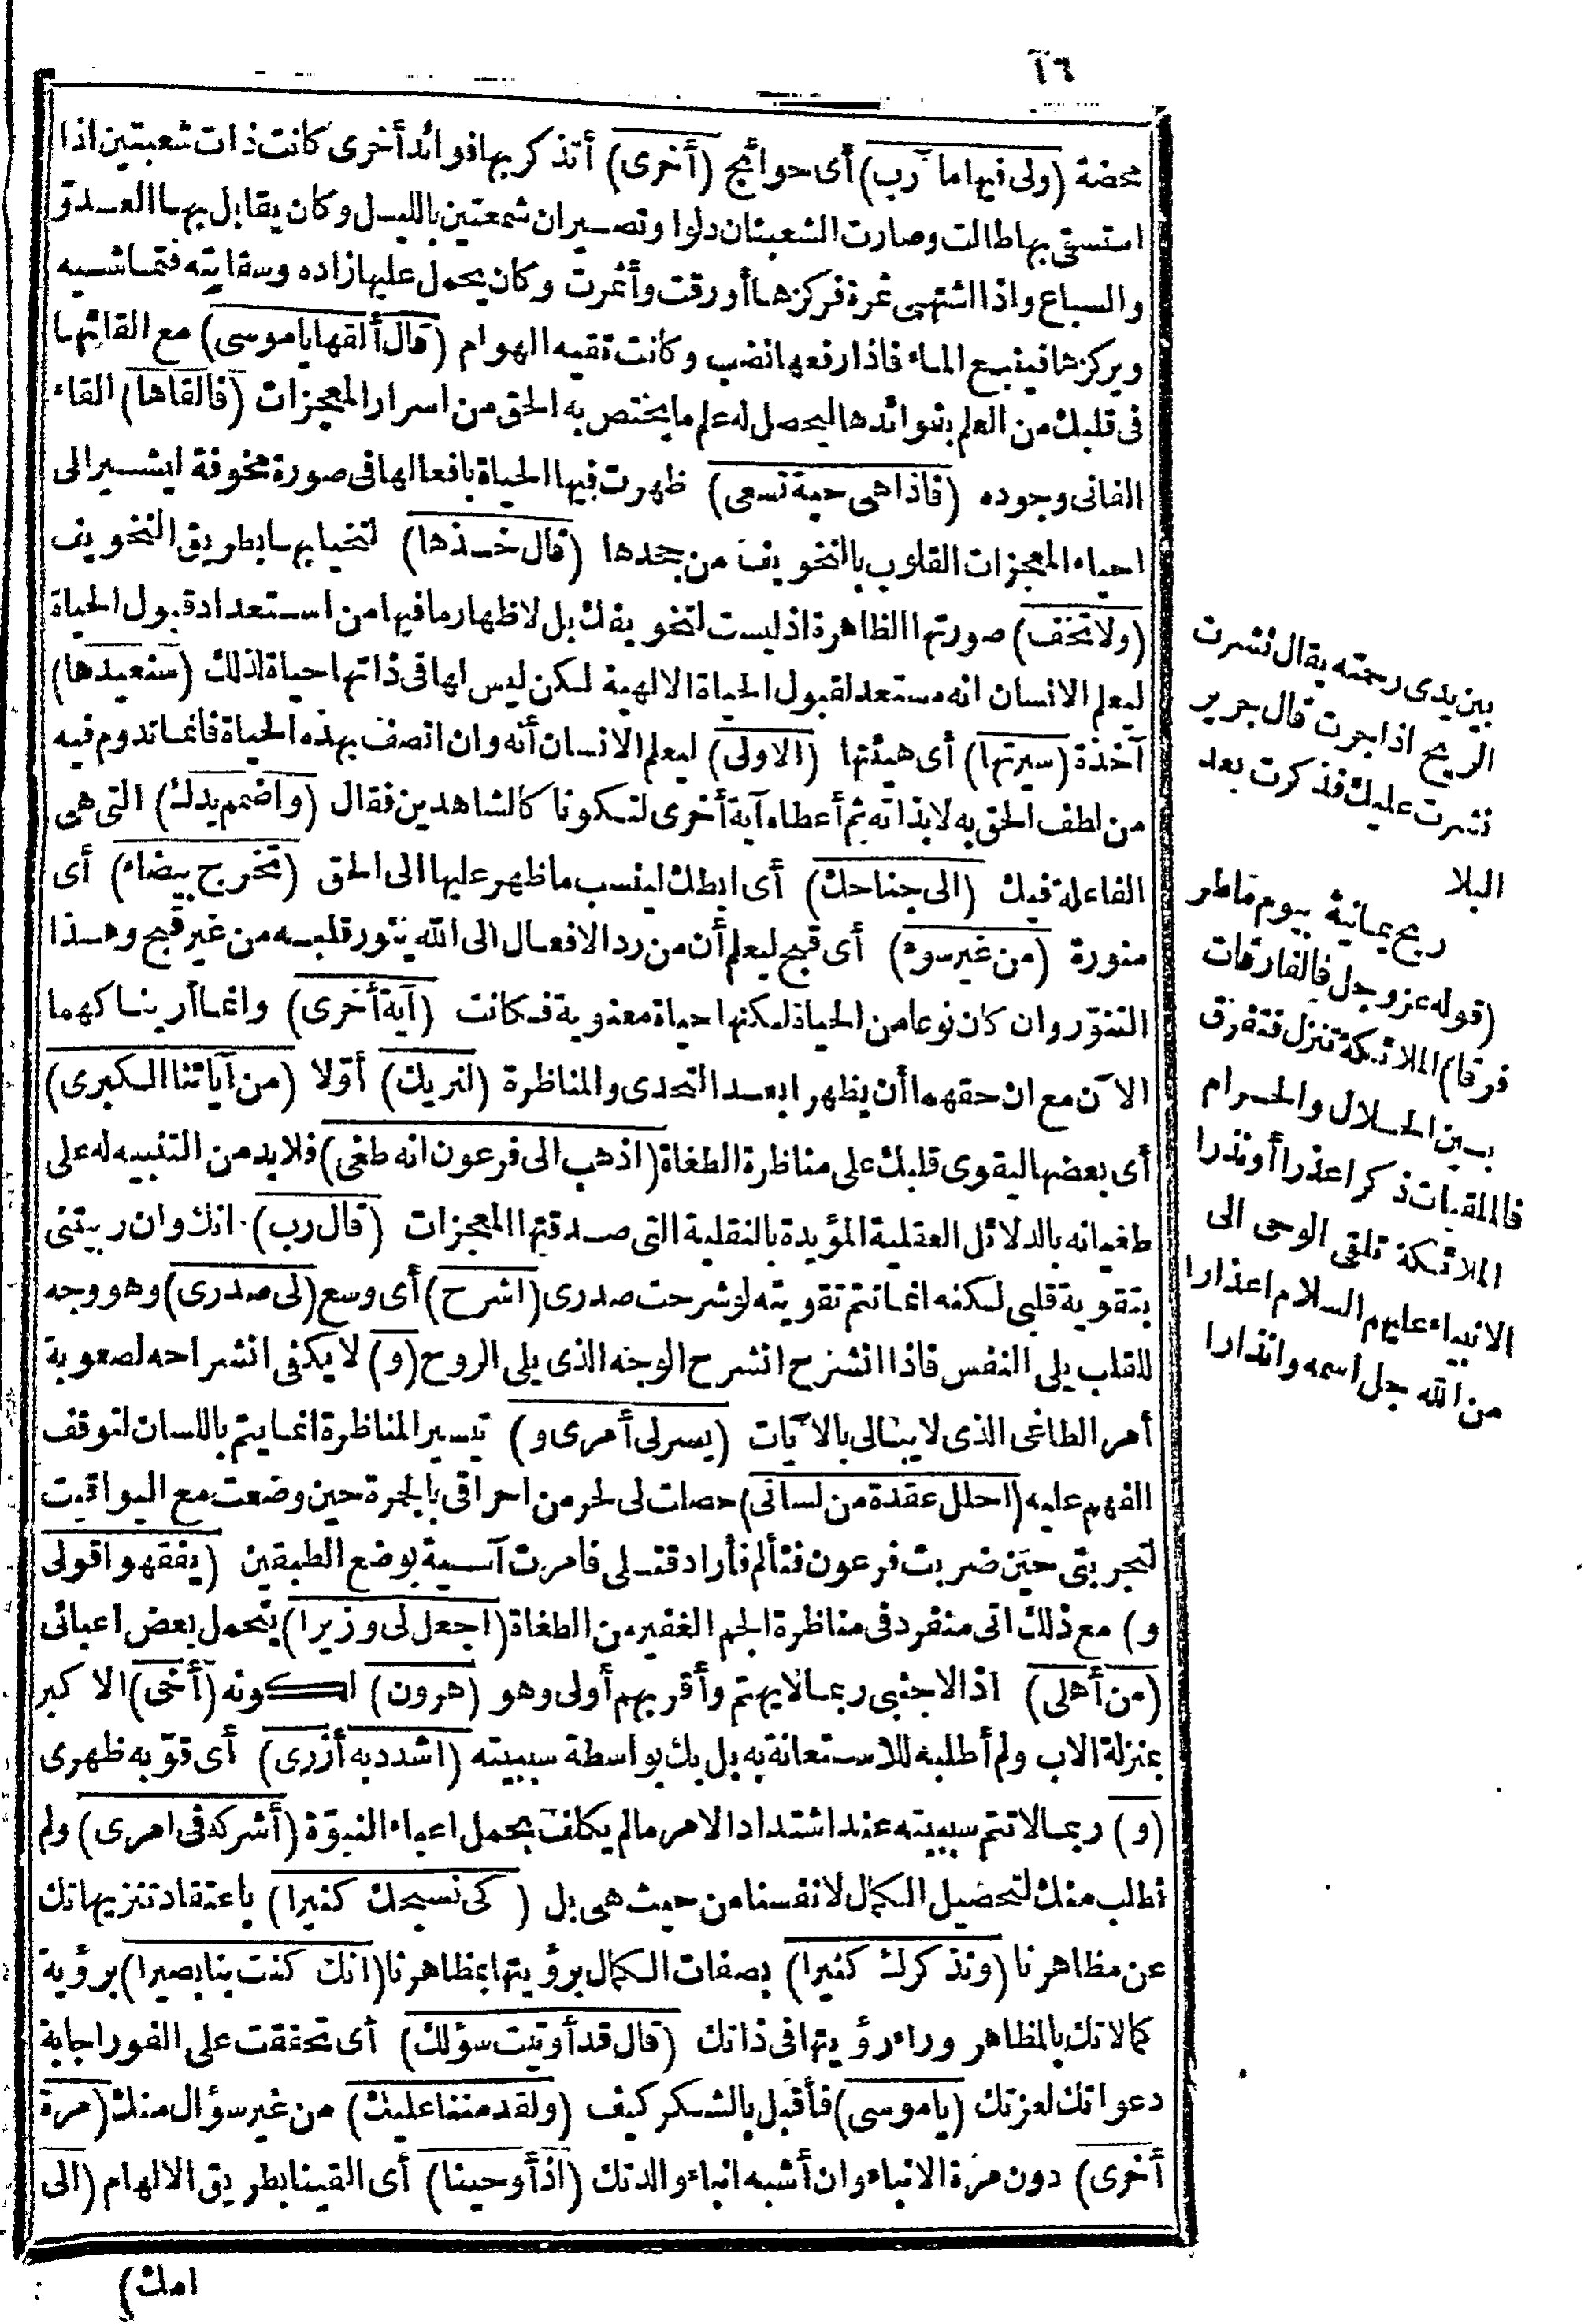 ١٦
محضة (ولى فيها مآرب) أى حوائج (أخرى) أتذكر بها فوائد أخرى كانت ذات شعبتين اذا
استسقى بها طالت وصارت الشعبتان دلوا وتصيران شمعتين بالليل وكان يقابل بها العدوّ
والسباع واذا اشتهى ثمرة فركزها أورقت وأثمرت وكان يحمل عليها زاده وسقايته فتماشيه
ويركزها فينبع الماء فاذا رفعها نضب وكانت تقيه الهوام (قال ألقها ياموسى) مع القائها
فى قلبك من العلم بفوائدها ليحصل له علم ما يختص به الحق من اسرار المعجزات (فالقاها) القاء
الفانى وجوده (فاذا هى حية تسعى) ظهرت فيها الحياة بافعالها فى صورة مخوفة ليشير الى
احياء المعجزات القلوب بالتخويف من جحدها (قال خذها) لتحيا بها بطريق التخويف
(ولا تخف) صورتها الظاهرة اذ ليست لتخويفك بل لاظهار ما فيها من استعداد قبول الحياة
ليعلم الانسان انه مستعد لقبول الحياة الالهية لكن ليس لها فى ذاتها حياة لذلك (سنعيدها)
آخذة (سيرتها) أى هيئتها (الاولى) ليعلم الانسان أنه وان اتصف بهذه الحياة فانما تدوم فيه
من لطف الحق به لا بذاته ثم أعطاه آية أخرى لتكونا كالشاهدين فقال (واضمم يدك) التى هى
الفاعلة فيك (الى جناحك) أى ابطك لينسب ما ظهر عليها الى الحق (تخرج بيضاء) أى
منورة (من غير سوء) أى قبح ليعلم أن من رد الافعال الى الله يتنور قلبه من غير قبح وهذا
التنوّر وان كان نوعا من الحياة لكنها حياة معنوية فكانت (آية أخرى) وانما أريناكهما
الآن مع ان حقهما أن يظهرا بعد التحدى والمناظرة (لنريك) أوّلا (من آياتنا الكبرى)
أى بعضها ليقوى قلبك على مناظرة الطغاة (اذهب الى فرعون انه طغى) فلا بد من التنبيه له على
طغيانه بالدلائل العقلية المؤيدة بالنقلية التى صدقتها المعجزات (قال رب) انك وان ربيتنى
بتقوية قلبى لكنه انما تتم تقويته لو شرحت صدرى (اشرح) أى وسع (لى صدرى) وهو وجه
للقلب يلى النفس فاذا انشرح انشرح الوجه الذى يلى الروح (و) لا يكفى انشراحه لصعوبة
أمر الطاغى الذى لا يبالى بالآيات (يسر لى أمرى و) تيسير المناظرة انما يتم باللسان لتوقف
الفهم عليه (احلل عقدة من لسانى) حصلت لى لحر من احراقى بالجمرة حين وضعت مع اليواقيت
لتجربتى حين ضربت فرعون فتألم فأراد قتلى فامرت آسية بوضع الطبقين (يفقهوا قولى
و) مع ذلك انى منفرد فى مناظرة الجم الغفير من الطغاة (اجعل لى وزيرا) يتحمل بعض اعبائى
(من أهلى) اذ الاجنبى ربما لا يهتم وأقربهم أولى وهو (هرون) لكونه (أخى) الاكبر
بمنزلة الاب ولم أطلبه للاستعانة به بل بك بواسطة سببيته (اشدد به أزرى) أى قوّ به ظهرى
(و) ربما لا تتم سببيته عند اشتداد الامر ما لم يكلف بحمل اعباء النبوّة (أشركه فى امرى) ولم
نطلب منك لتحصيل الكمال لانفسنا من حيث هى بل (كى نسبحك كثيرا) باعتقاد تنزيهاتك
عن مظاهرنا (ونذكرك كثيرا) بصفات الكمال برؤيتها بمظاهرنا (انك كنت بنا بصيرا) برؤية
كمالاتك بالمظاهر وراء رؤيتها فى ذاتك (قال قد أوتيت سؤلك) أى تحققت على الفور اجابة
دعواتك لعزتك (ياموسى) فأقبل بالشكر كيف (ولقد مننا عليك) من غير سؤال منك (مرة
أخرى) دون مرة الانباء وان أشبه انباء والدتك (اذ أوحينا) أى القينا بطريق الالهام (الى
امك)
بين يدى رحمته يقال نشرت
الريح اذا جرت قال جرير
نشرت عليك فذكرت بعد
البلا
ريح يمانية بيوم ماطر
(قوله عز وجل فالفارقات
فرقا) الملائكة تنزل فتفرق
بين الحلال والحرام
فالملقيات ذكرا عذرا أو نذرا
الملائكة تلقى الوحى الى
الانبياء عليهم السلام اعذارا
من الله جل اسمه وانذارا